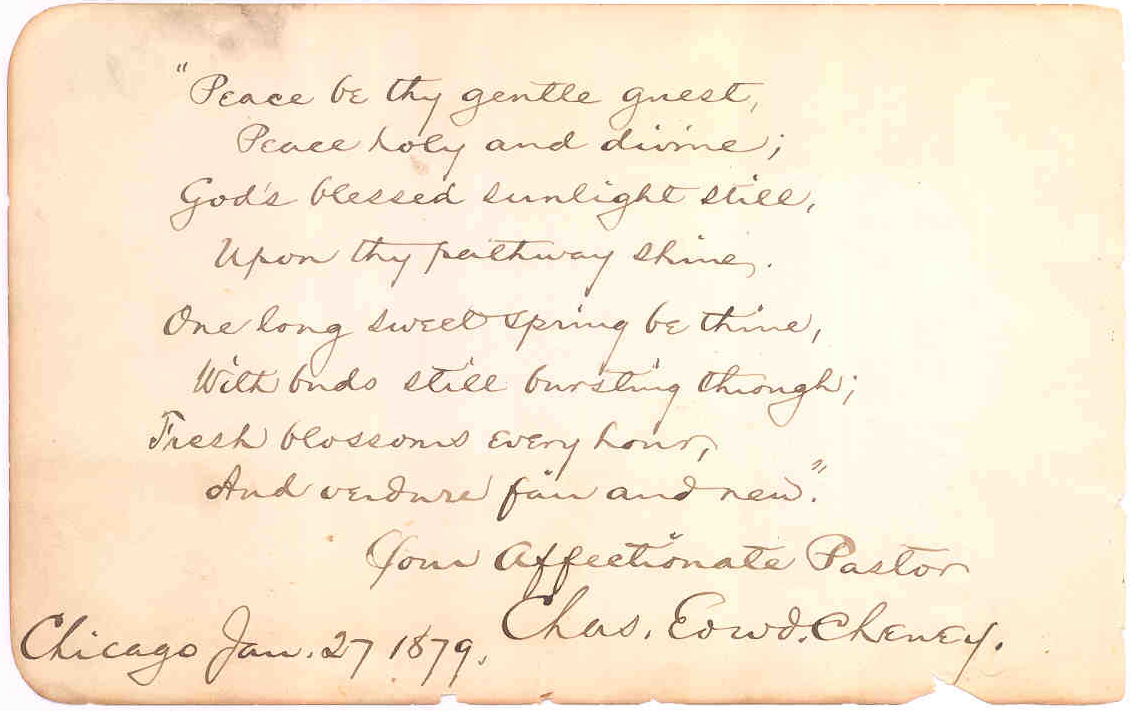 "Peace be thy gentle guest,
Peace holy and divine;
God's blessed sunlight still,
Upon thy pathway shine.
One long sweet spring be thine,
With buds still bursting through;
Fresh blossoms every hour,
And verdure fair and new."
Your Affectionate Pastor
Chas. Edwd. Cheney.
Chicago Jan. 27 1879.